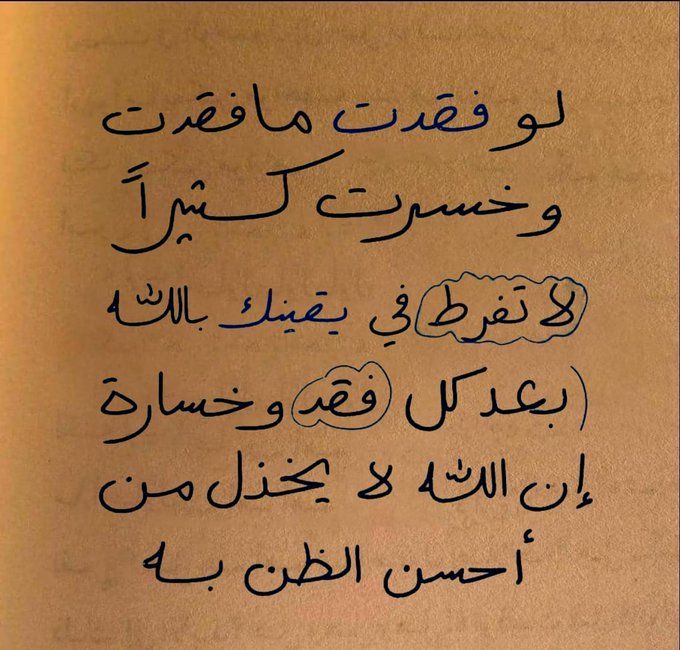 لو فقدت ما فقدت
وخسرت كثيراً
لا تفرط في يقينك بالله
(بعد كل فقد وخسارة
إن الله لا يخذل من
أحسن الظن به